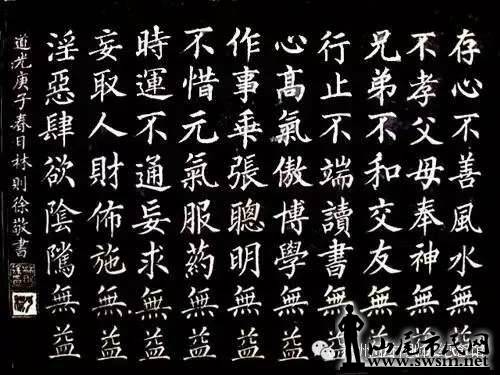 存心不善風水無益
不孝父母奉神無益
兄弟不和交友無益
行止不端讀書無益
心髙氣傲博學無益
作事乖張聰明無益
不惜元氣服药無益
時運不通妄求無益
妄取人財佈施無益
淫惡肆欲陰騭無益
道光庚子春日林則徐敬書
汕尾市民网
www.swsm.net